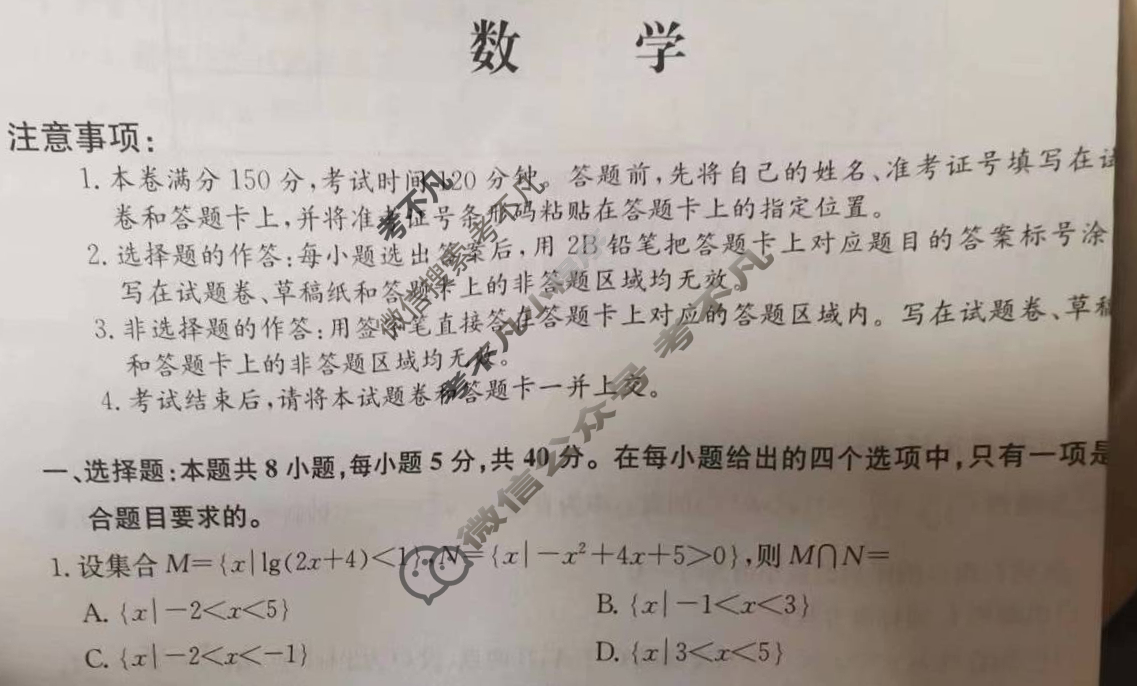 数 学
注意事项:
1. 本卷满分 150 分,考试时间 120 分钟。答题前,先将自己的姓名、准考证号填写在试
卷和答题卡上,并将准考证号条形码粘贴在答题卡上的指定位置。
2. 选择题的作答:每小题选出答案后,用 2B 铅笔把答题卡上对应题目的答案标号涂
写在试题卷、草稿纸和答题卡上的非答题区域均无效。
3. 非选择题的作答:用签字笔直接答在答题卡上对应的答题区域内。写在试题卷、草稿
和答题卡上的非答题区域均无效。
4. 考试结束后,请将本试题卷和答题卡一并上交。
一、选择题:本题共 8 小题,每小题 5 分,共 40 分。在每小题给出的四个选项中,只有一项是
合题目要求的。
1. 设集合 M={x|lg(2x+4)<1},N={x|-x²+4x+5>0},则 M∩N=
A. {x|-2<x<5}
B. {x|-1<x<3}
C. {x|-2<x<-1}
D. {x|3<x<5}
考不凡
微信搜索 考不凡
考不凡小程序
微信公众号 考不凡